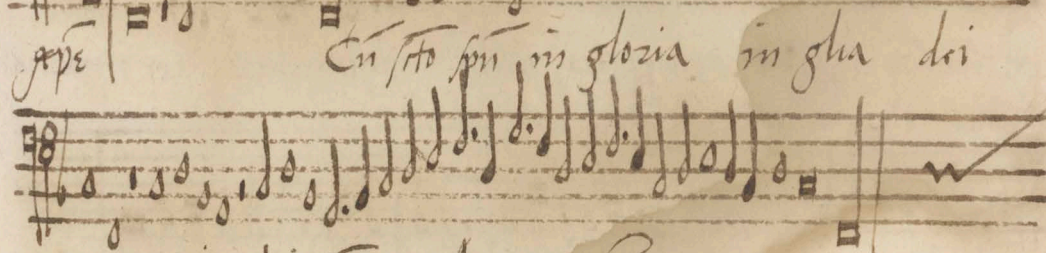 Cu̅ sc̅to spu̅ in gloria in gl̅ia dei